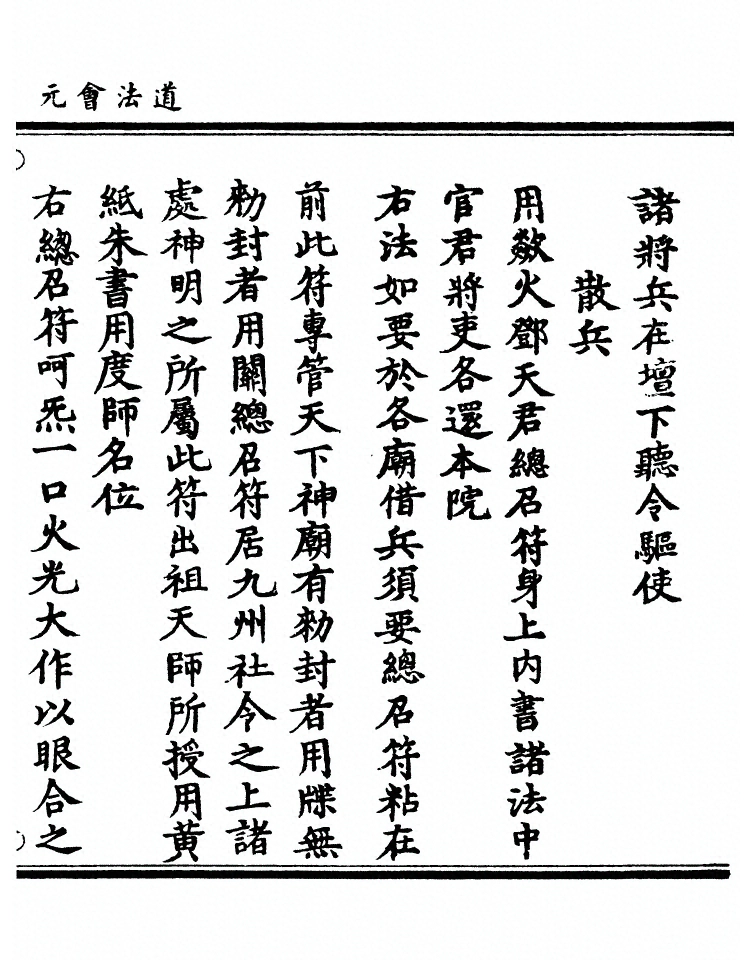 道法會元
諸將兵在壇下聽令驅使
散兵
用歘火鄧天君總召符身上内書諸法中
官君將吏各還本院
右法如要於各廟借兵須要總召符粘在
前此符專管天下神廟有勑封者用牒無
勑封者用關總召符居九州社令之上諸
處神明之所屬此符出祖天師所授用黄
紙朱書用度師名位
右總召符呵炁一口火光大作以眼合之